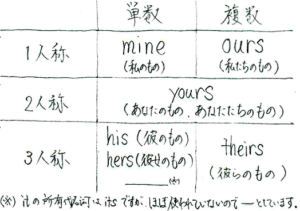 単数 複数
1人称 mine ours
(私のもの) (私たちのもの)
2人称 yours
(あなたのもの、あなたたちのもの)
3人称 his (彼のもの) theirs
hers(彼女のもの) (彼らのもの)
(※)
(※) itの所有代名詞は its ですが、ほぼ使われていないので ― としています。